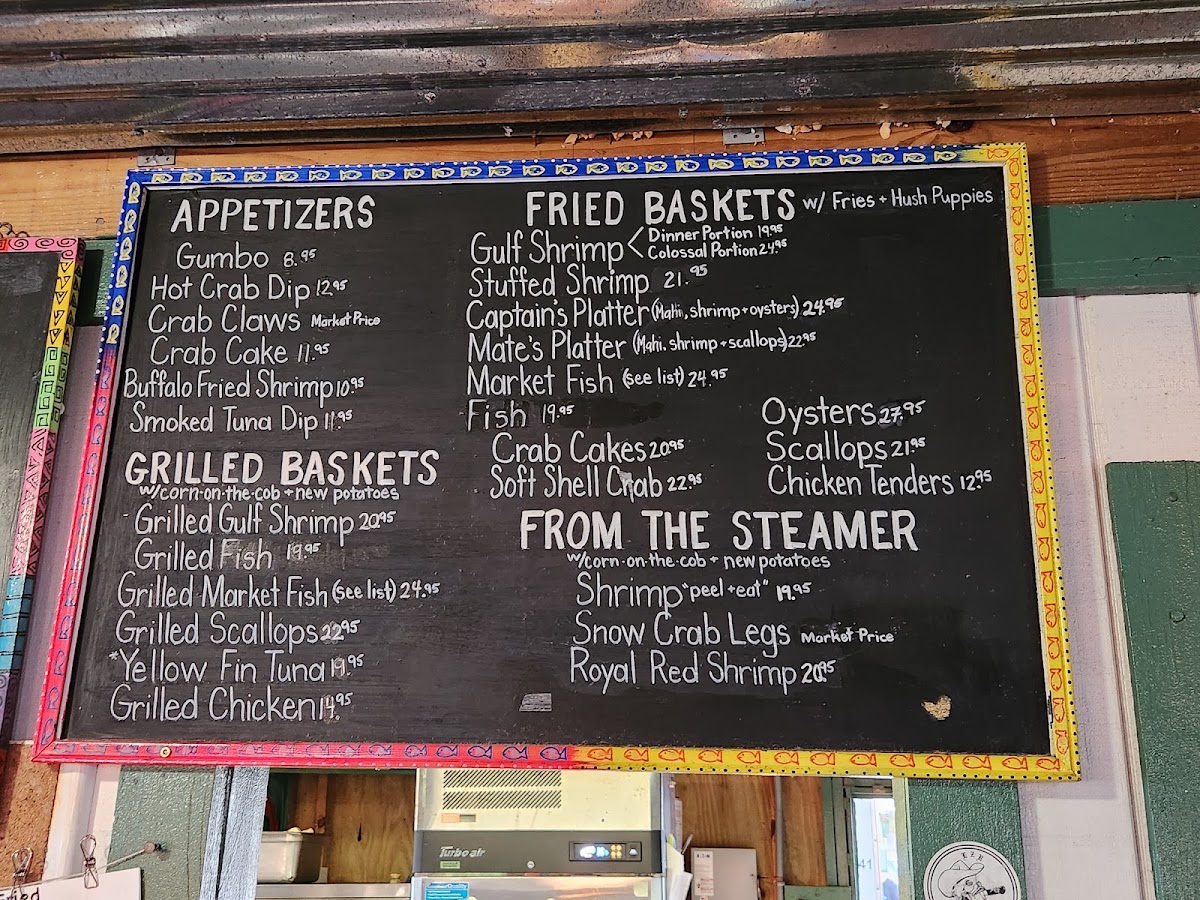 APPETIZERS
Gumbo 8.95
Hot Crab Dip 12.95
Crab Claws Market Price
Crab Cake 11.95
Buffalo Fried Shrimp 10.95
Smoked Tuna Dip 11.95
GRILLED BASKETS
w/corn-on-the-cob + new potatoes
Grilled Gulf Shrimp 20.95
Grilled Fish 19.95
Grilled Market Fish (see list) 24.95
Grilled Scallops 22.95
*Yellow Fin Tuna 19.95
Grilled Chicken 14.95
FRIED BASKETS w/ Fries + Hush Puppies
Gulf Shrimp < Dinner Portion 19.95
Colossal Portion 24.95
Stuffed Shrimp 21.95
Captain's Platter (Mahi, shrimp + oysters) 24.95
Mate's Platter (Mahi, shrimp + scallops) 22.95
Market Fish (see list) 24.95
Fish 19.95
Crab Cakes 20.95
Soft Shell Crab 22.95
Oysters 27.95
Scallops 21.95
Chicken Tenders 12.95
FROM THE STEAMER
w/corn-on-the-cob + new potatoes
Shrimp "peel + eat" 19.95
Snow Crab Legs Market Price
Royal Red Shrimp 20.95
Turbo air
Fried
41